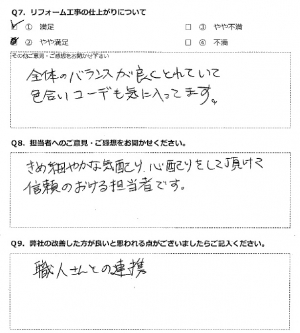 Q7. リフォーム工事の仕上がりについて
☑ ① 満足 □ ③ やや不満
■ ② やや満足 □ ④ 不満
その他ご意見・ご感想をお聞かせ下さい
全体のバランスが良くとれていて
色合いコーデも気に入ってます。
Q8. 担当者へのご意見・ご感想をお聞かせください。
きめ細やかな気配り、心配りをして頂けて
信頼のおける担当者です。
Q9. 弊社の改善した方が良いと思われる点がございましたらご記入ください。
職人さんとの連携